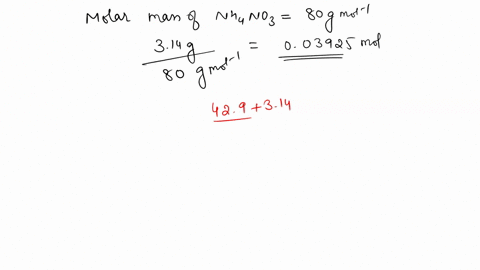 Molar mass of NH4NO3 = 80 g mol-1
3.14 g / 80 g mol-1 = 0.03925 mol
42.9 + 3.14